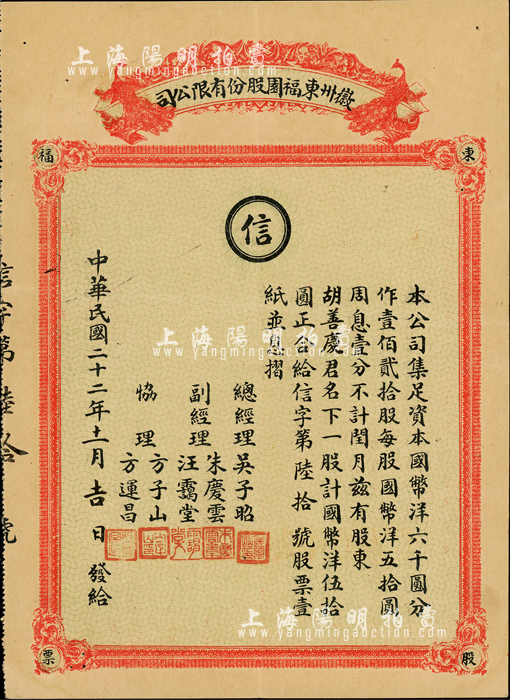 上海陽明拍賣
www.yangmingauction.com
徽州東福園股份有限公司
東
福
信
本公司集足資本國幣洋六千圓分
作壹佰貳拾股每股國幣洋五拾圓
周息壹分不計閏月茲有股東
胡善慶君名下一股計國幣洋伍拾
圓正合給信字第陸拾號股票壹
紙並息摺
總經理吳子昭
副經理朱慶雲
汪靄堂
協理方子山
方運昌
中華民國二十二年十一月吉日發給
信字第陸拾號
上海陽明拍賣
www.yangmingauction.com
股
票
上海陽明拍賣
www.yangmingauction.com